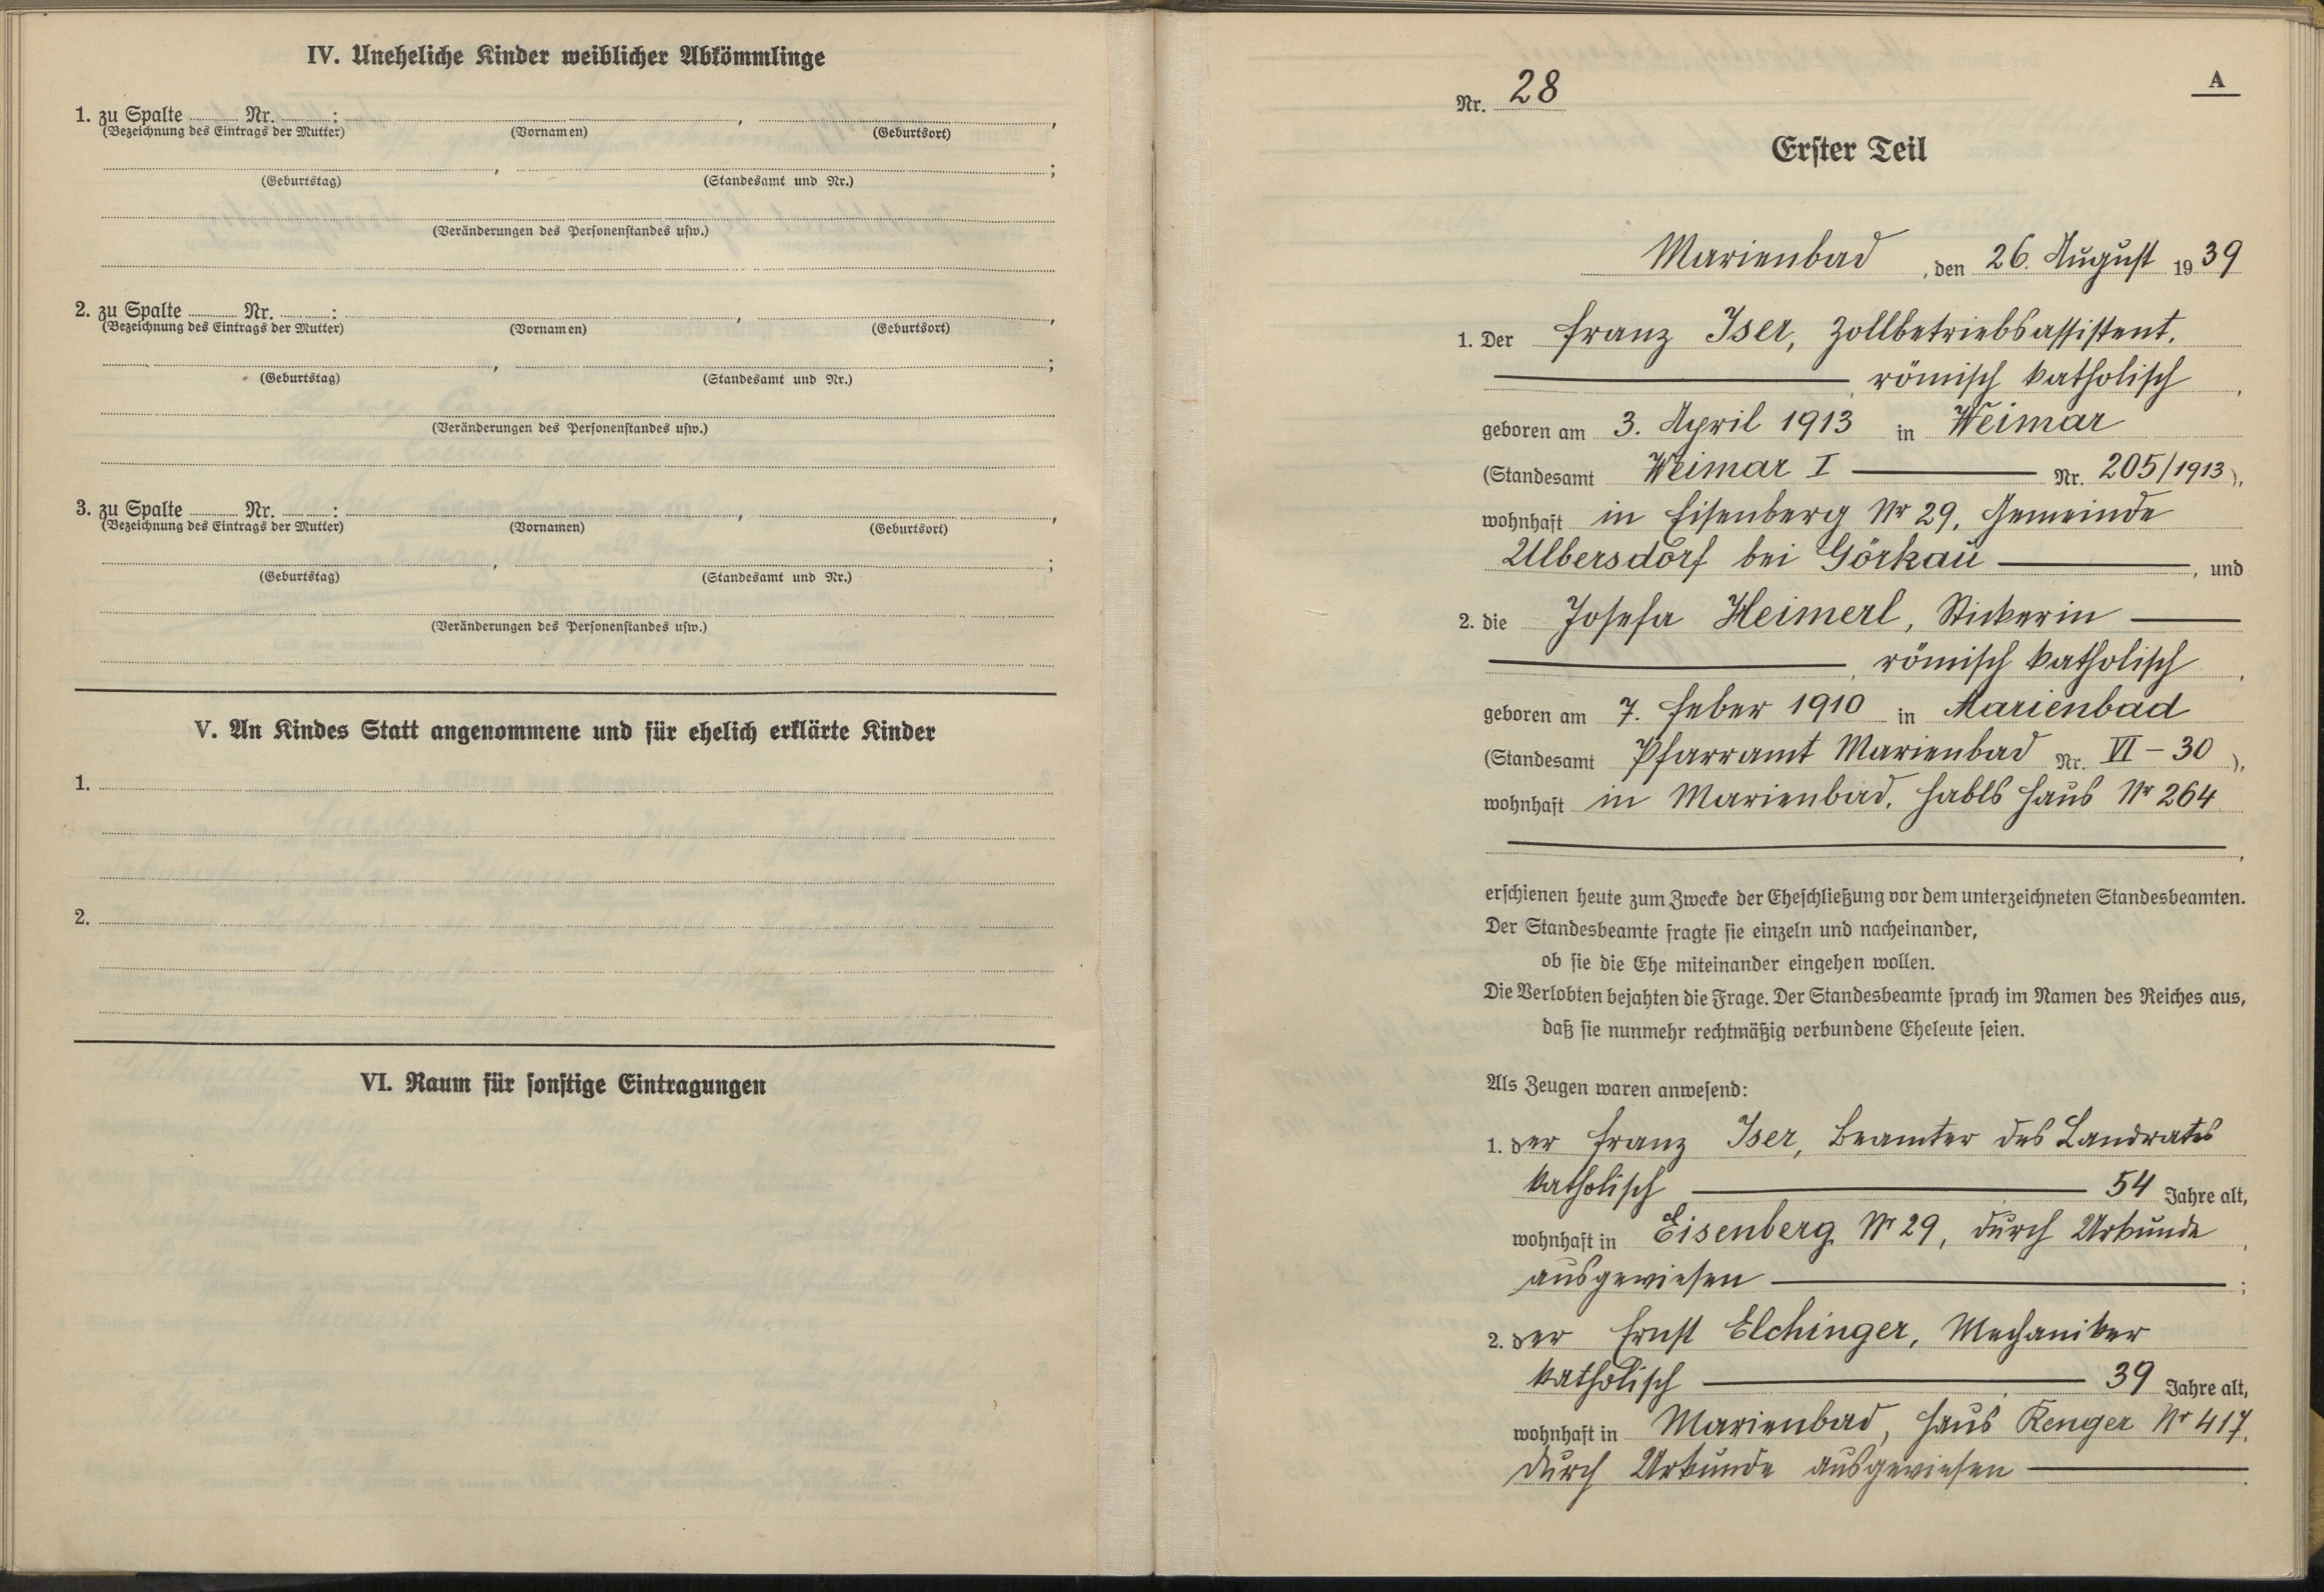 IV. Uneheliche Kinder weiblicher Abkömmlinge
1. zu Spalte ........ Nr. ........ : ........, ........,
(Bezeichnung des Eintrags der Mutter) (Vornamen) (Geburtsort)
........, ........;
(Geburtstag) (Standesamt und Nr.)
(Veränderungen des Personenstandes usw.)
2. zu Spalte ........ Nr. ........ : ........, ........,
(Bezeichnung des Eintrags der Mutter) (Vornamen) (Geburtsort)
........, ........;
(Geburtstag) (Standesamt und Nr.)
(Veränderungen des Personenstandes usw.)
3. zu Spalte ........ Nr. ........ : ........, ........,
(Bezeichnung des Eintrags der Mutter) (Vornamen) (Geburtsort)
........, ........;
(Geburtstag) (Standesamt und Nr.)
(Veränderungen des Personenstandes usw.)
V. An Kindes Statt angenommene und für ehelich erklärte Kinder
1.
2.
VI. Raum für sonstige Eintragungen
A
Nr. 28
Erster Teil
Marienbad, den 26. August 1939
1. Der Franz Iser, Zollbetriebsassistent,
römisch katholisch,
geboren am 3. April 1913 in Weimar
(Standesamt Weimar I — Nr. 205/1913),
wohnhaft in Eisenberg Nr 29, Gemeinde
Ulbersdorf bei Görkau —, und
2. die Josefa Heimerl, Stickerin —
—, römisch katholisch,
geboren am 7. Feber 1910 in Marienbad
(Standesamt Pfarramt Marienbad Nr. VI – 30),
wohnhaft in Marienbad, Habls Haus Nr 264
—,
erschienen heute zum Zwecke der Eheschließung vor dem unterzeichneten Standesbeamten.
Der Standesbeamte fragte sie einzeln und nacheinander,
ob sie die Ehe miteinander eingehen wollen.
Die Verlobten bejahten die Frage. Der Standesbeamte sprach im Namen des Reiches aus,
daß sie nunmehr rechtmäßig verbundene Eheleute seien.
Als Zeugen waren anwesend:
1. der Franz Iser, Beamter des Landrates
katholisch — 54 Jahre alt,
wohnhaft in Eisenberg Nr 29, durch Urkunde,
ausgewiesen —;
2. der Ernst Elchinger, Mechaniker
katholisch — 39 Jahre alt,
wohnhaft in Marienbad, Haus Renger Nr 417,
durch Urkunde ausgewiesen —.